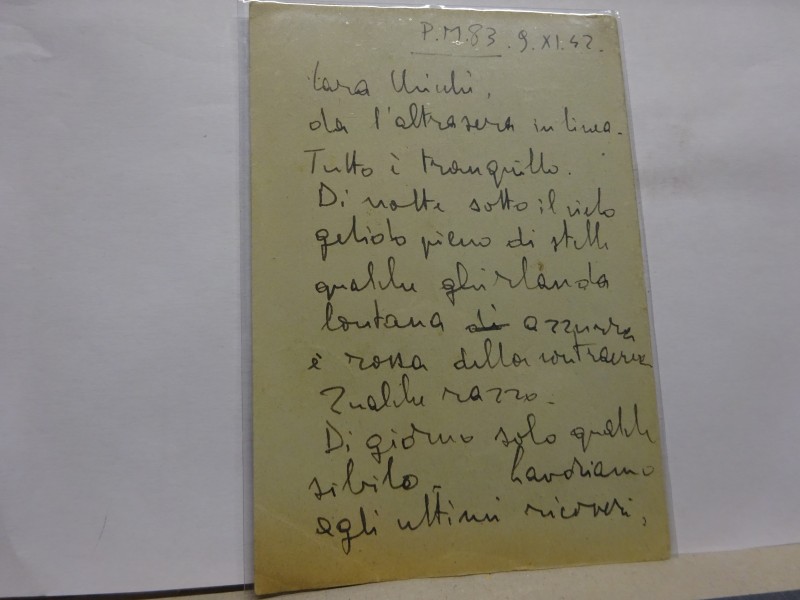 P.M.83. 9.XI.42.
Cara Chicchi,
da l'altrasera in linea.
Tutto è tranquillo.
Di notte sotto il cielo
gelido pieno di stelle
qualche ghirlanda
lontana di azzurra
e rossa della contraerea
Qualche razzo.
Di giorno solo qualche
sibilo. Lavoriamo
agli ultimi ricoveri,